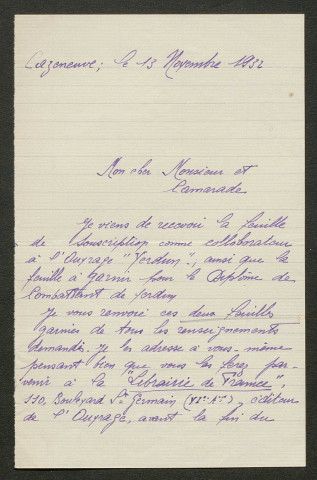 Cazeneuve, le 13 Novembre 1932
Mon cher Monsieur et
Camarade
Je viens de recevoir la feuille
de souscription comme collaborateur
à l'Ouvrage "Verdun", ainsi que la
feuille à garnir pour le Diplôme de
Combattant de Verdun
Je vous renvoie ces deux feuilles
garnies de tous les renseignements
demandés. Je les adresse à vous-même
pensant bien que vous les ferez par-
venir à la "Librairie de France",
110, Boulevard St Germain (VIe Arr), éditeur
de l'Ouvrage, avant la fin du